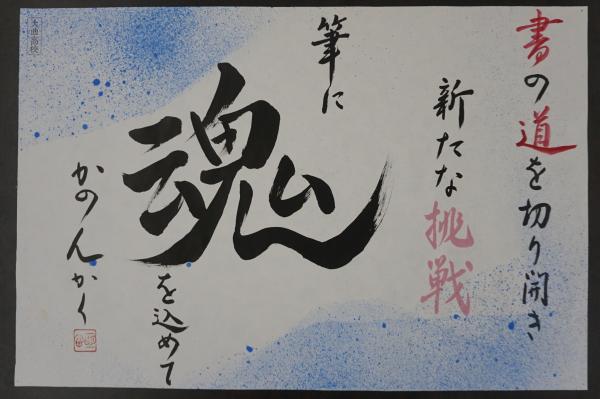 書の道を切り開き
新たな挑戦
筆に
魂
を込めて
かのんかく
大曲高校